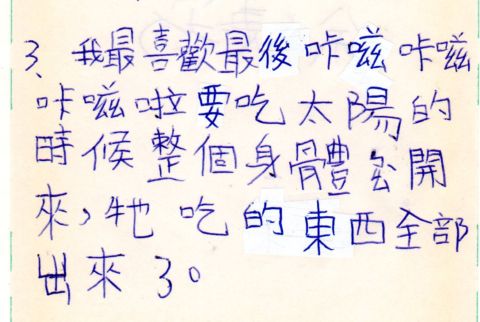 3、我最喜歡最後咔嗞咔嗞
咔嗞啦要吃太陽的
時候整個身體開
來,牠吃的東西全部
出來了。